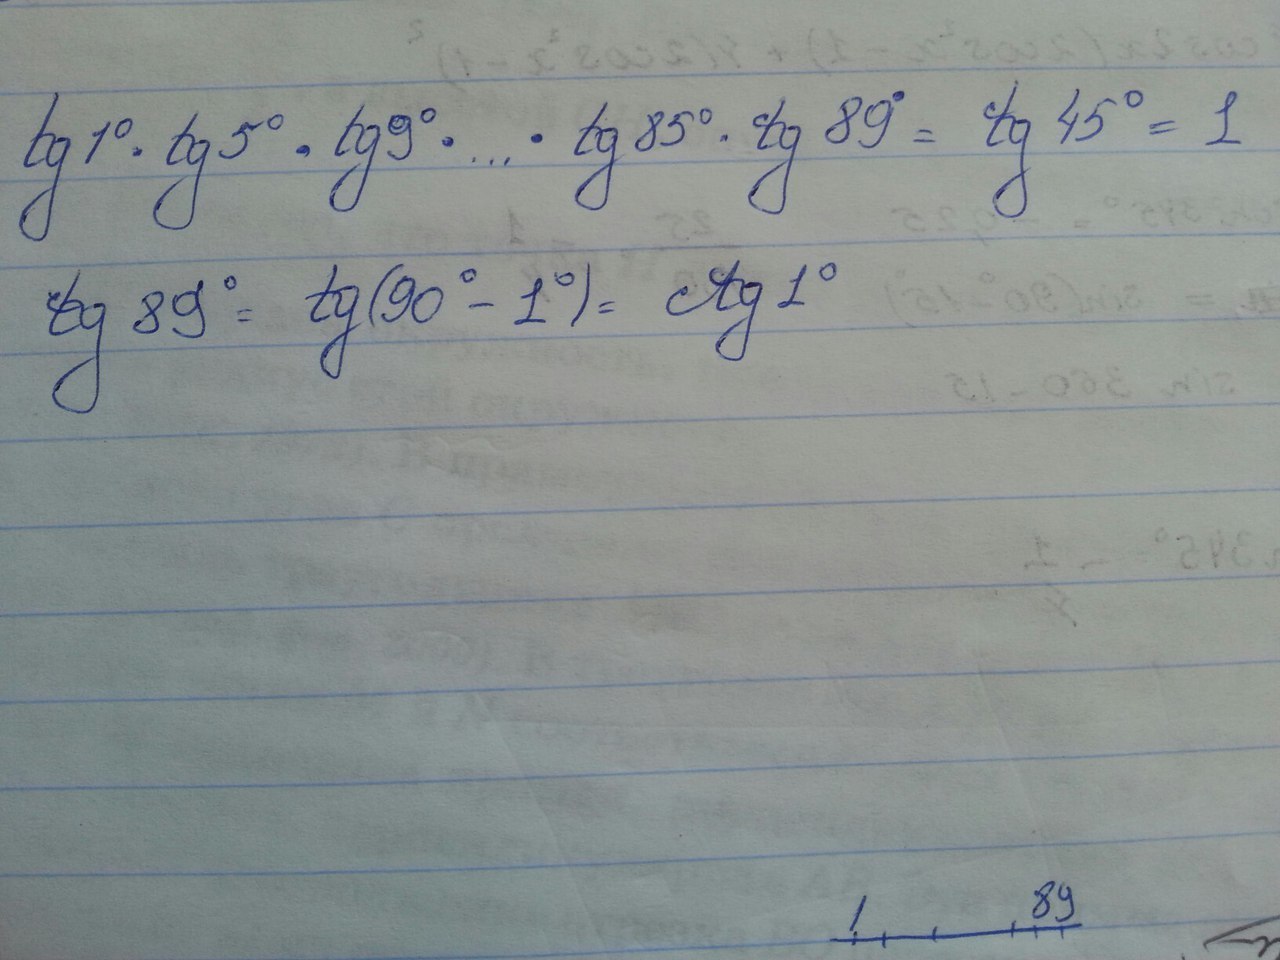 tg 1° · tg 5° · tg 9° · ... · tg 85° · tg 89° = tg 45° = 1
tg 89° = tg(90° - 1°) = ctg 1°
1 89